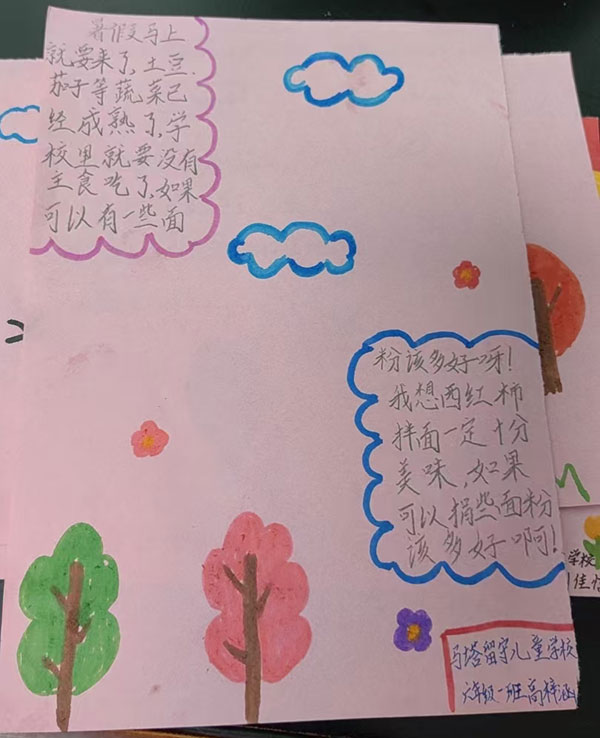 暑假马上
就要来了,土豆.
茄子等蔬菜已
经成熟了,学
校里就要没有
主食吃了,如果
可以有一些面
粉该多好呀!
我想西红柿
拌面一定十分
美味,如果
可以捐些面粉
该多好啊!
马塔留守儿童学校
六年级一班高梓涵
学校
佳怡